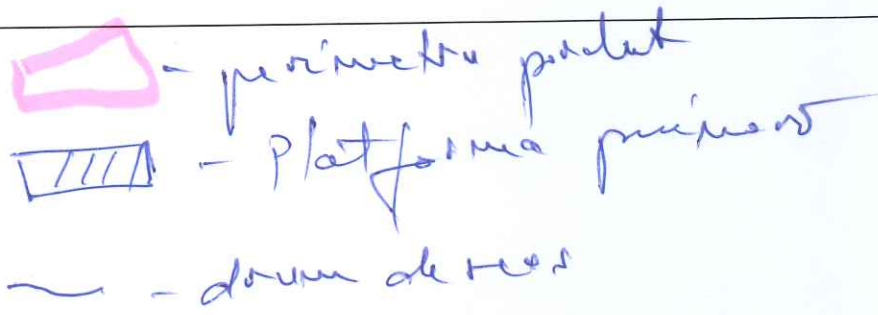 - perimetru predat
- Platforma primară
- drum de acces